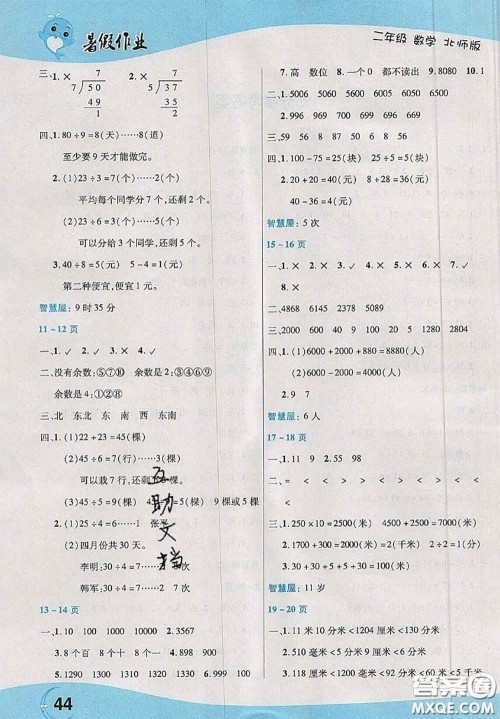 暑假作业
二年级 数学 北师版
三、1. × 7 2. × 7
7√50 5√37
49 35
1 2
四、1. 80÷9=8(天)……8(道)
至少要 9 天才能做完。
2. (1)23÷3=7(个)……2(个)
平均每个同学分 7 个,还剩 2 个。
(2)23÷6=3(个)……5(个)
可以分给 3 个同学,还剩 5 个。
3. 40÷8=5(元) 5-4=1(元)
第二种便宜,便宜 1 元。
智慧屋: 9 时 35 分
11~12 页
一、1. ✓ 2. ✓ 3. × 4. ×
二、没有余数:⑤⑦⑩ 余数是 2:③④⑥⑨
余数是 4:①②⑧
三、北 东北 东 南 西南 东南
四、1. (1)22+23=45(棵)
(2)45÷6=7(行)……3(棵)
可以栽 7 行,还剩 3 棵。
(3)45÷5=9(棵)
2. (1)22 6 11 1 张
(2)四月份共 30 天。
李明:30÷4=7 次
韩军:30÷7=4 次
互助文档
13~14 页
一、1. 10 100 1000 10000 2. 3567
3. 8 个百 8 个十 8 个一 4. >
5. 1290 1300 1310 1330 6. 999 100
44
7. 高 数位 8. 一个 0 都不读出 9. 8080 10. 1
二、1. 5006 5056 5600 6050 6500
三、10 59 56 86 91 9 8 9
四、1. 100-75=25(块) 25÷5=5(块)
2. 40÷8=5(元) 8+24=32(元)
40-36=4(元)
智慧屋: 5 次
15~16 页
一、1. ✓ 2. × 3. × 4. × 5. ✓ 6. ✓ 7. × 8. ×
9. × 10. ✓
二、4868 6145 2380 7538
三、9831 6831 4831 3831 2831
四、1. (1)6000-2000=4000(张)
(2)6000+2800=8800(张)
2. 9 7
智慧屋: 6 人
17~18 页
一、1. 11 9 2. 55 98
二、= < < < < < < <
< > < >
三、1. 2500+2500=5000(千克)
2. 4500-2500=2000(米)=2(千米)
3. 1200-600-200=400(千米)
智慧屋: 11 岁
19~20 页
一、1. 11 厘米<1204 厘米<130 分米
2. 10 分米<1204 厘米<130 米
3. 118 厘米<92 分米<5 千米<6000 米
答案圈
MXQE.COM